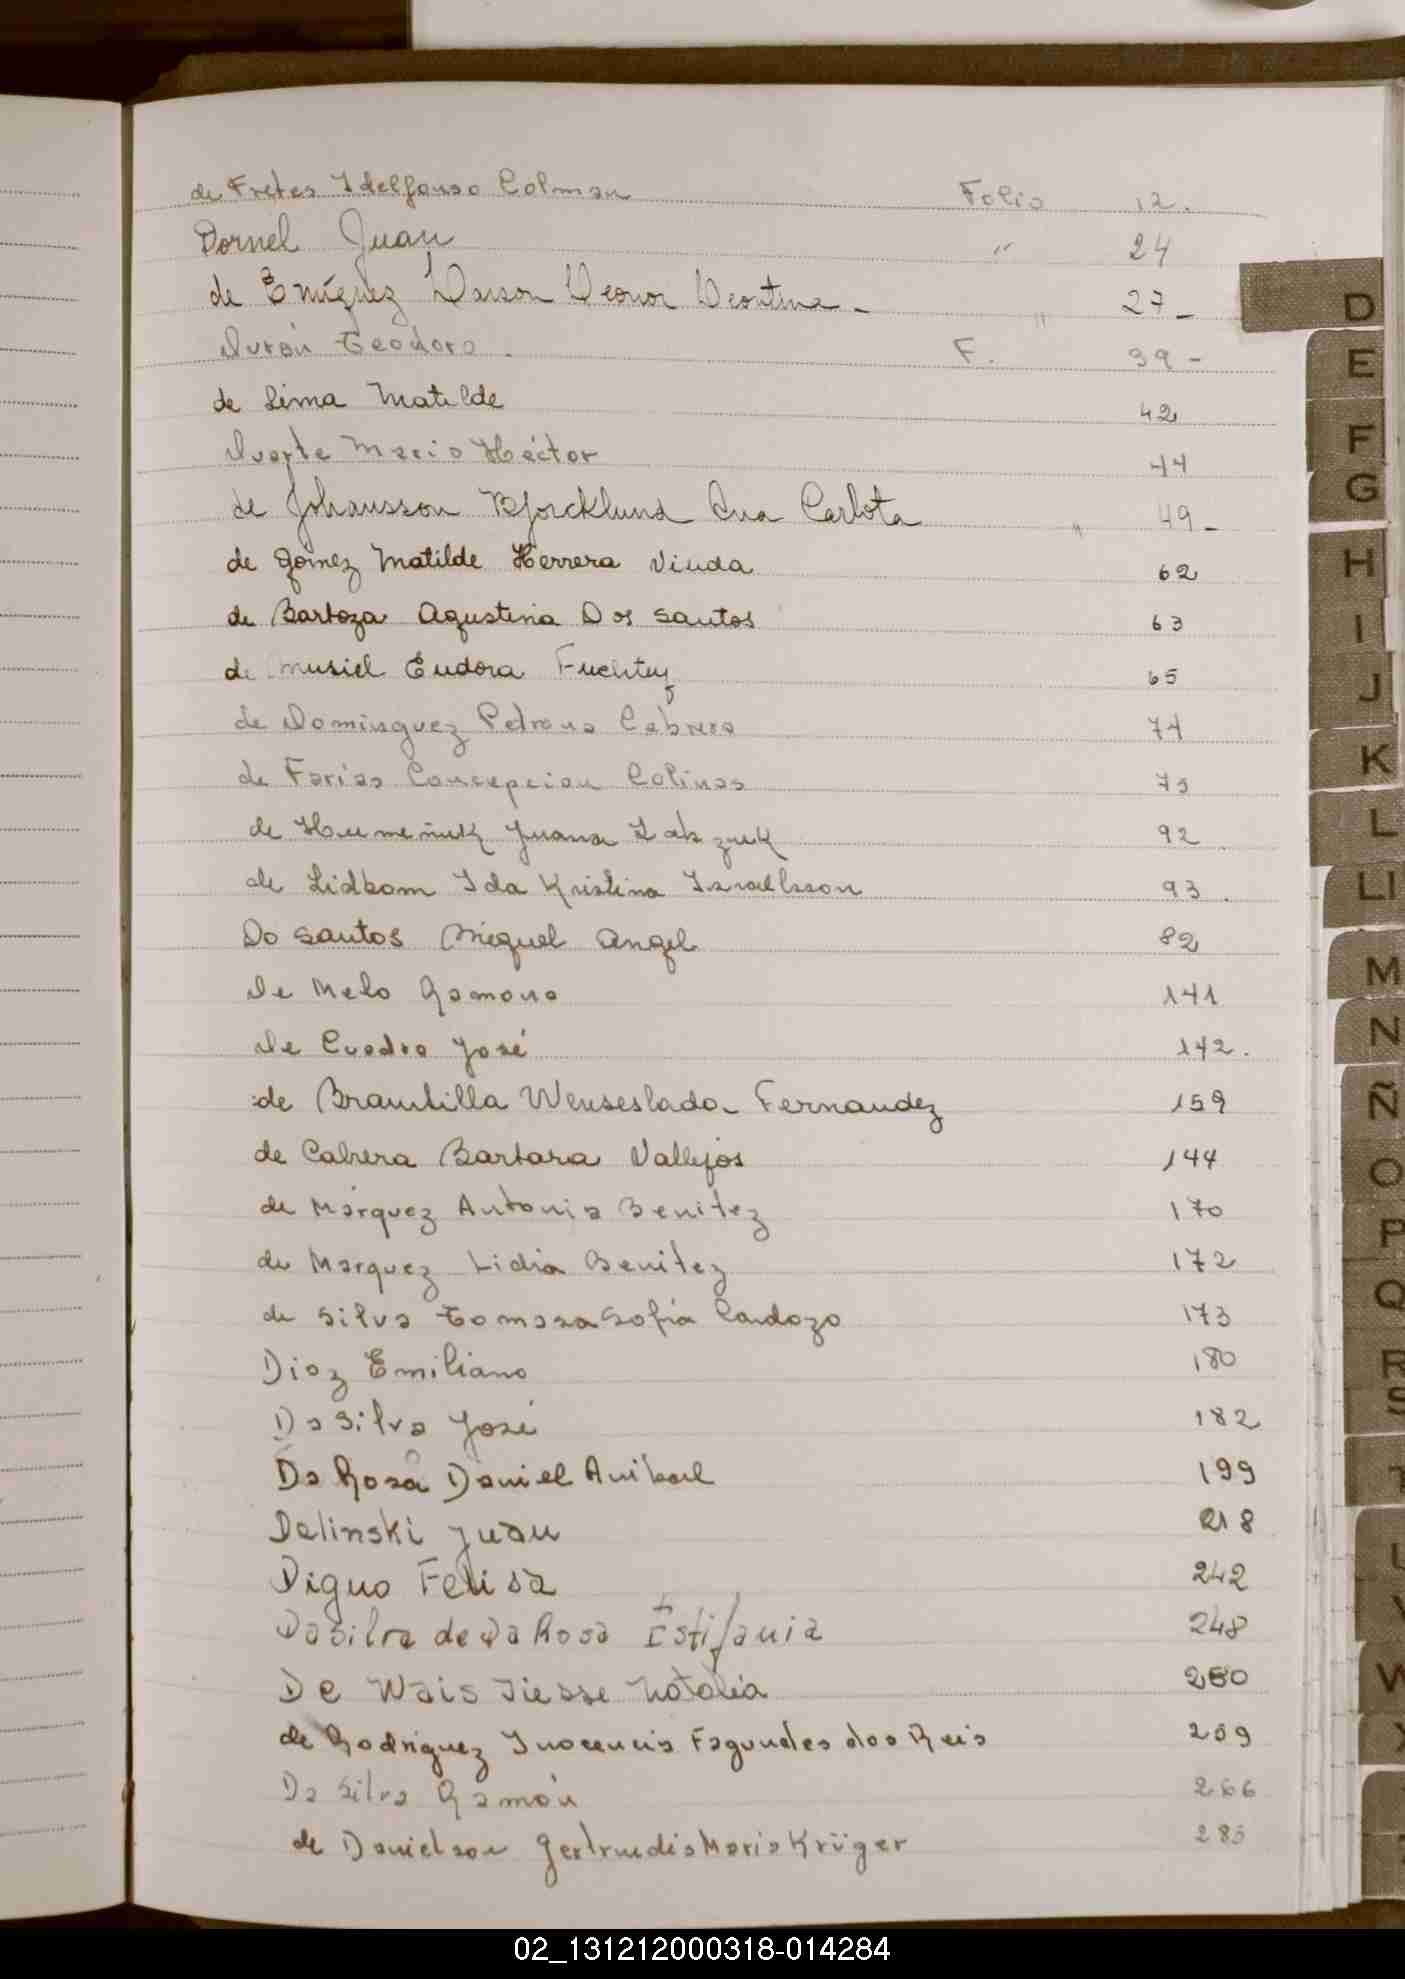 de Fretes Idelfonso Colman Folio 12.
Dornel Juan " 24
de Emíguez Larson Leonor Leontina - " 27 -
Durán Teodoro. F. 39 -
de Lima Matilde 42
Duarte Mario Héctor 44
de Johansson Bjorcklund Ana Carlota " 49 -
de Gomez Matilde Herrera Viuda 62
de Barboza Agustina Dos Santos 63
de Musiel Eudora Fuchtey 65
de Dominguez Petrona Cabrera 74
de Farias Concepcion Colinas 75
de Humeniuk Juana 92
de Lidbom Ida Kristina Israelsson 93.
Do Santos Miguel Angel 82
De Melo Ramona 141
De Cuadro José 142.
de Brambilla Wenseslada Fernandez 159
de Cabrera Barbara Vallejos 144
de Márquez Antonia Benitez 170
de Marquez Lidia Benitez 172
de Silva Tomasa Sofia Cardozo 173
Diaz Emiliano 180
Da Silva José 182
Da Rosa Daniel Anibal 199
Dalinski Juan 218
Diguo Felisa 242
Da Silva de Da Rosa Estifania 248
De Wais Natalia 250
de Rodriguez Inocencia Fagundes dos Reis 259
Da Silva Ramón 266
de Danielson Gertrudis Maria Krüger 285
D
E
F
G
H
I
J
K
L
Ll
M
N
Ñ
O
P
Q
R
S
T
U
V
W
X
02_131212000318-014284